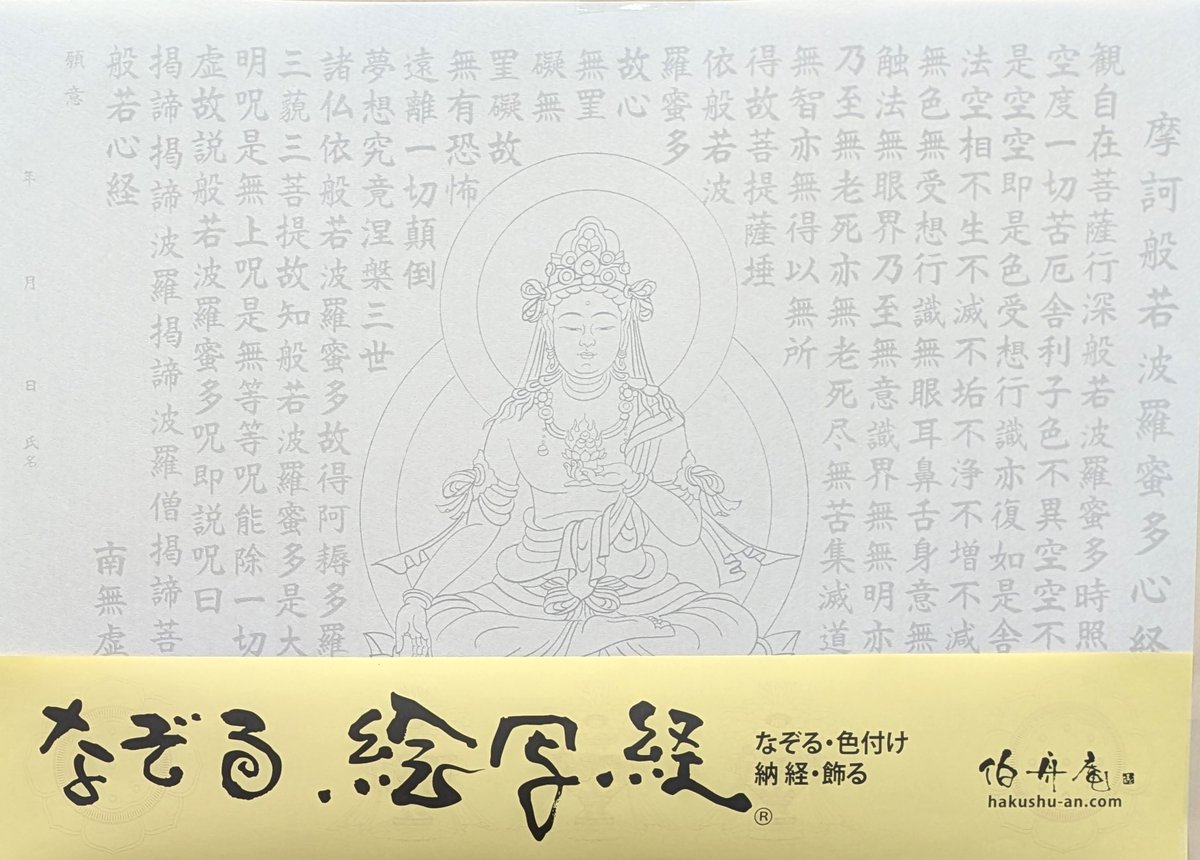 摩訶般若波羅蜜多心経
観自在菩薩行深般若波羅蜜多時照
空度一切苦厄舎利子色不異空空不
是空空即是色受想行識亦復如是舎
法空相不生不滅不垢不浄不増不減
無色無受想行識無眼耳鼻舌身意無
触法無眼界乃至無意識界無無明亦
乃至無老死亦無老死尽無苦集滅道
無智亦無得以無所
得故菩提薩埵
依般若波
羅蜜多
故心
無罣
礙無
罣礙故
無有恐怖
遠離一切顛倒
夢想究竟涅槃三世
諸仏依般若波羅蜜多故得阿耨多羅
三藐三菩提故知般若波羅蜜多是大
明呪是無上呪是無等等呪能除一切
虚故説般若波羅蜜多呪即説呪曰
掲諦掲諦波羅掲諦波羅僧掲諦菩
般若心経
南無虚
願意
年 月 日 氏名
なぞる絵写経®
なぞる・色付け
納経・飾る
伯舟庵
hakushu-an.com